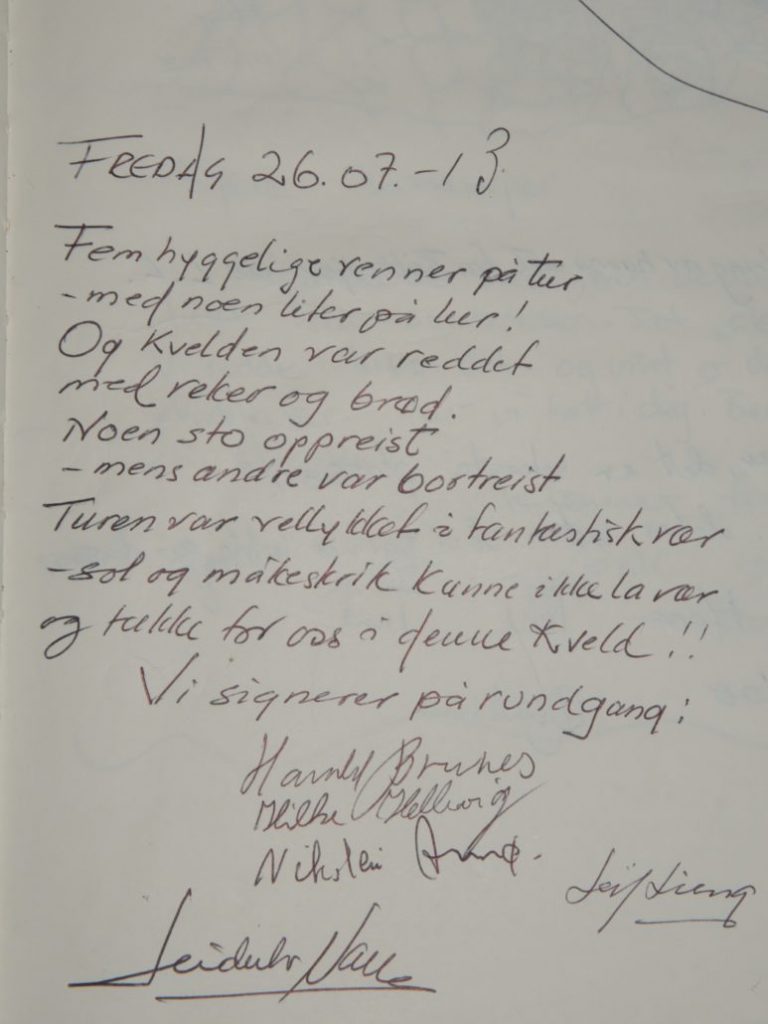 FREDAG 26.07.-13
Fem hyggelige venner på tur
- med noen liter på lur!
Og kvelden var reddet
med reker og brød.
Noen sto oppreist
- mens andre var bortreist
Turen var vellykket i fantastisk vær
- sol og måkeskrik kunne ikke la vær
og takke for oss i denne kveld!!
Vi signerer på rundgang:
Harald
Hilke Hellwig
Nikolai
Leif